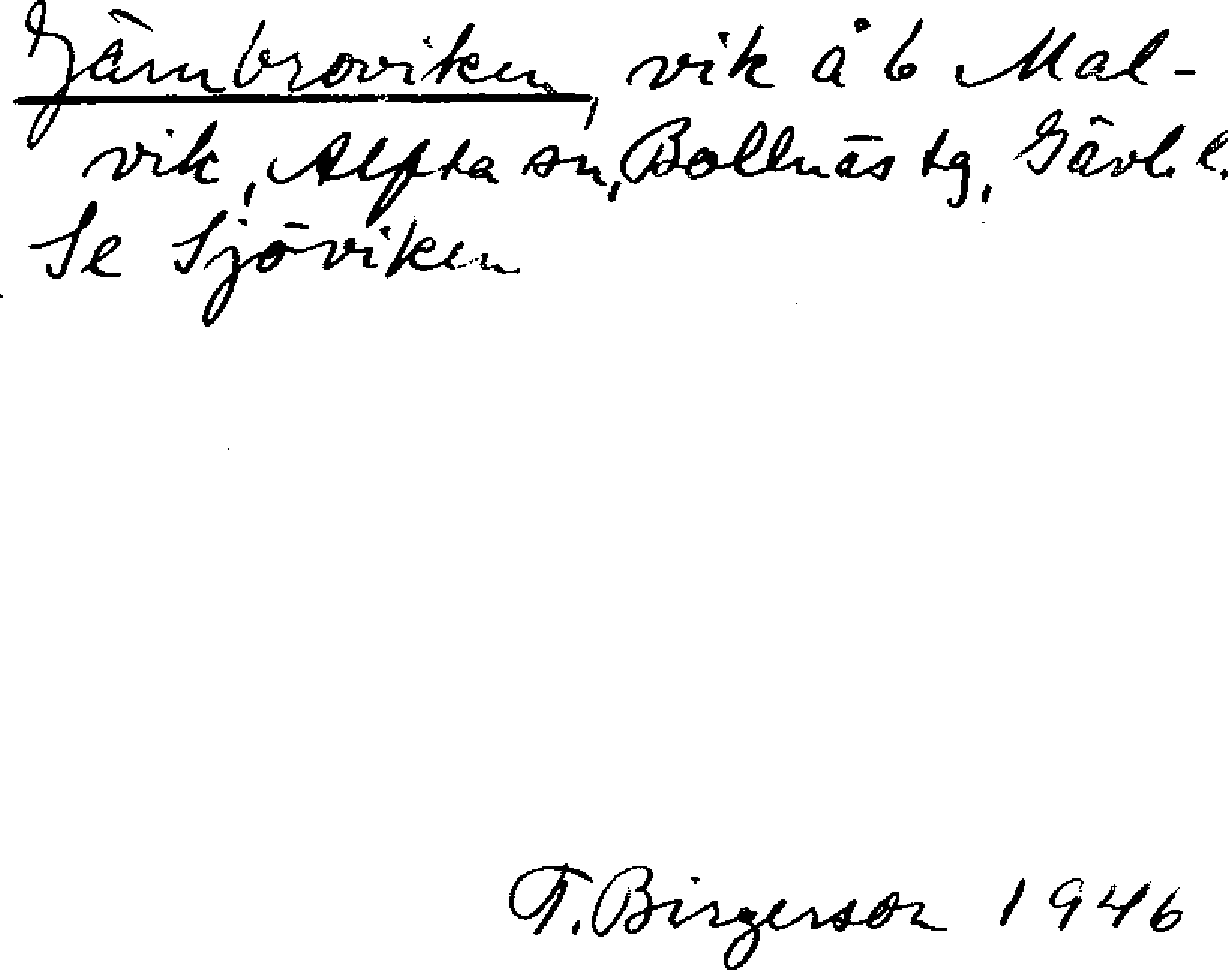 Järnbroviken, vik å b Mal-
vik, Alfta sn, Bollnäs tg, Gävl. l.
Se Sjöviken
T. Birgerson 1946